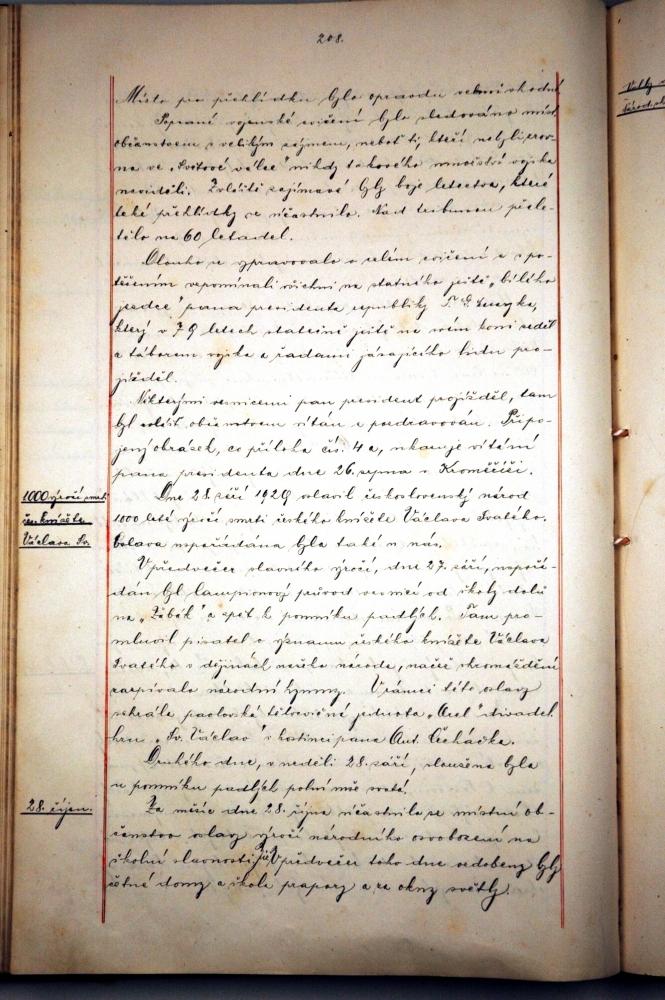 208.
Místo pro přehlídku bylo opravdu velmi vhodné.
Popsané vojenské cvičení bylo sledováno míst.
občanstvem s velikým zájmem, neboť ti, kteří nebyli zrov-
na ve „Světové válce" nikdy takového množství vojska
neviděli. Zvláště zajímavé byly boje letectva, které
také přehlídky se účastnilo. Nad tribunou přele-
tělo na 60 letadel.
Dlouho se vypravovalo o celém cvičení a s po-
těšením vzpomínali všichni na statného ještě „bílého
jezdce" pana presidenta republiky T. G. Masaryka,
který v 79 letech statečně ještě na svém koni seděl
a táborem vojska a řadami jásajícího lidu pro-
jížděl.
Některými vesnicemi pan president projížděl, tam
byl zvlášť občanstvem vítán a pozdravován. Připo-
jený obrázek, co příloha čís. 4 a, ukazuje vítání
pana presidenta dne 26. srpna v Kroměříži.
1000 výročí smrti
čes. knížete
Václava Sv.
Dne 28. září 1929 oslavil československý národ
1000 leté výročí smrti českého knížete Václava Svatého.
Oslava uspořádána byla také u nás.
V předvečer slavného výročí, dne 27. září, uspořá-
dán byl lampionový průvod vesnicí od školy dolů
na „Žabák" a zpět k pomníku padlých. Tam pro-
mluvil pisatel o významu českého knížete Václava
Svatého v dějinách našeho národa, načež shromáždění
zazpívalo národní hymny. V rámci této oslavy
sehrála pavlovská tělocvičná jednota „Orel" divadel.
hru „Sv. Václav" v hostinci pana Ant.
Druhého dne, v neděli 28. září, sloužena byla
u pomníku padlých polní mše svatá.
28. říjen.
Za měsíc dne 28. října účastnilo se místní ob-
čanstvo oslavy výročí národního osvobození na
školní slavnosti již V předvečer toho dne ozdobeny byly
četné domy a škola prapory a za okny světly.